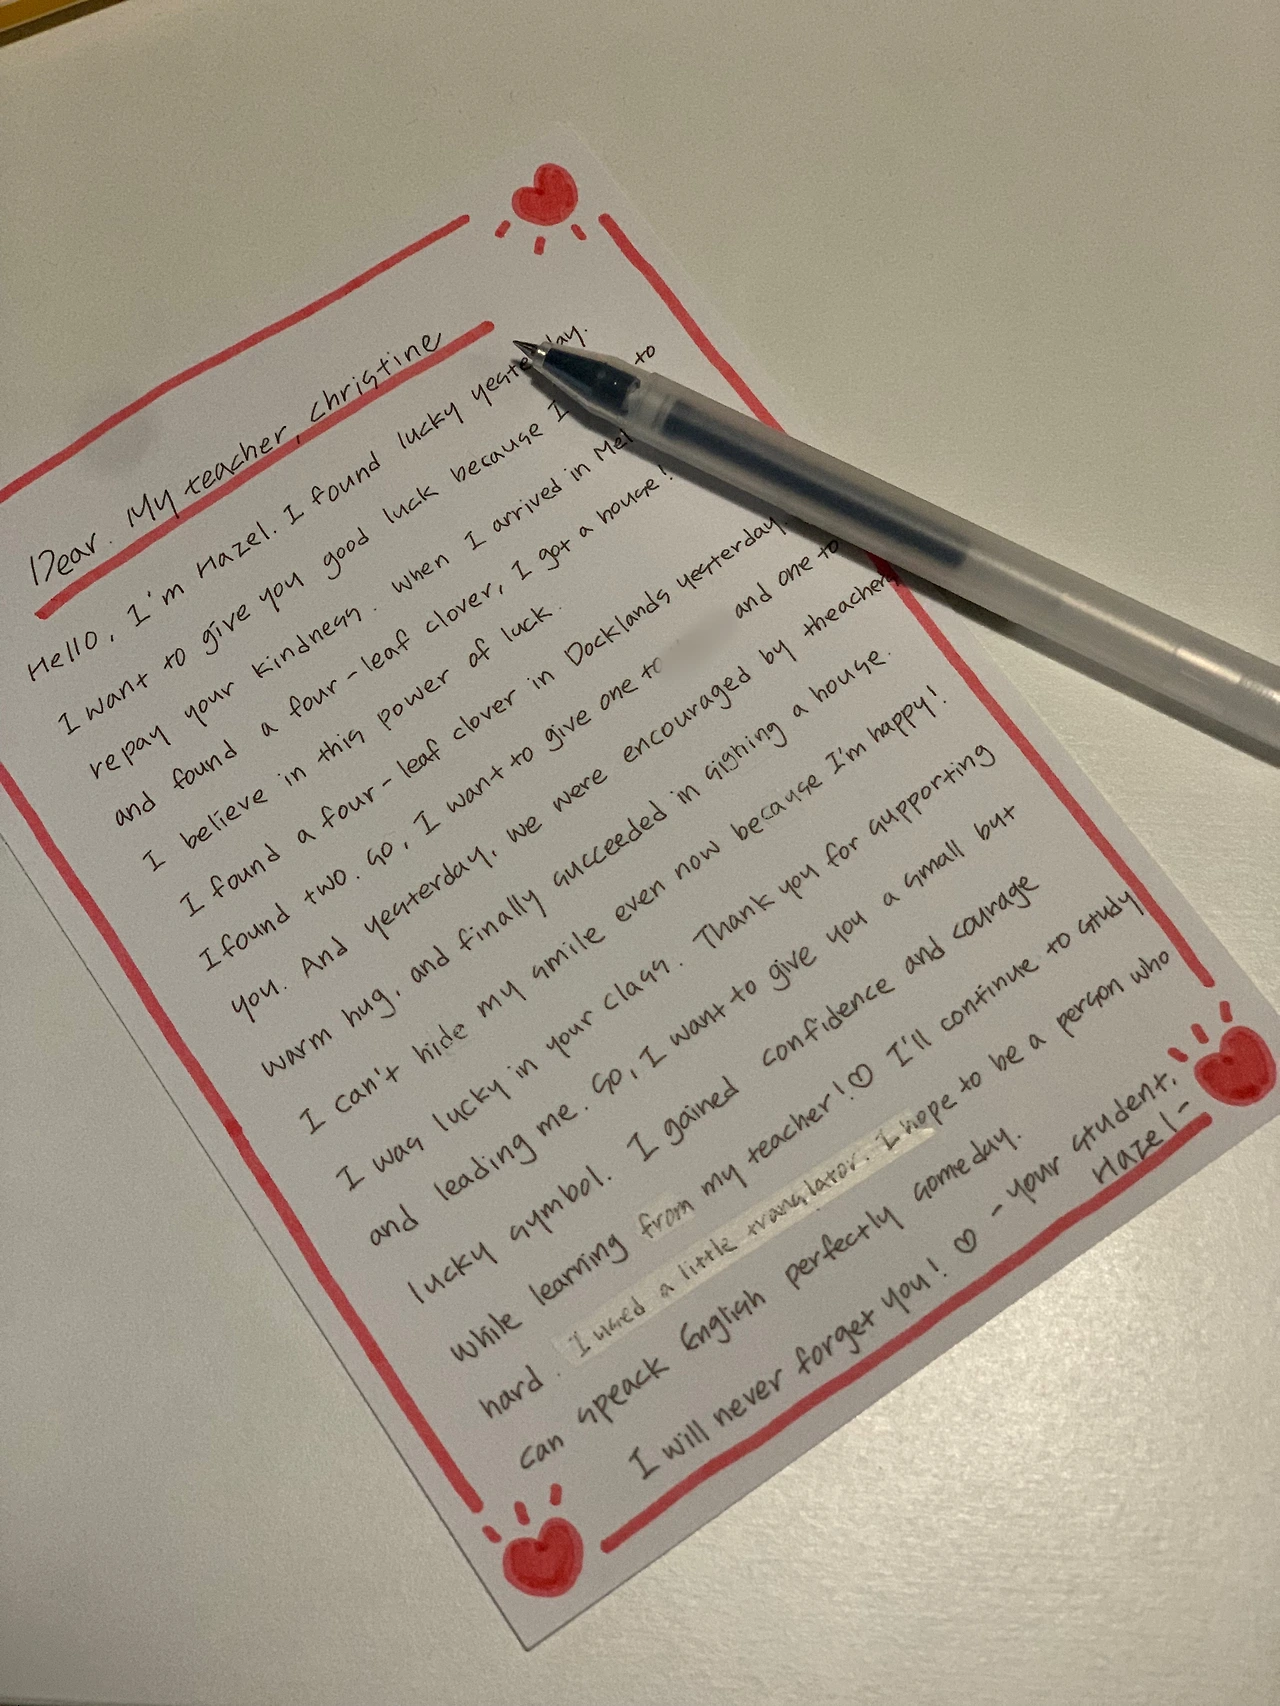 Dear. My teacher, christine
Hello, I'm Hazel. I found lucky yesterday.
I want to give you good luck because I to
repay your kindness. when I arrived in Mel
and found a four-leaf clover, I got a house!
I believe in this power of luck.
I found a four-leaf clover in Docklands yesterday.
I found two. So, I want to give one to and one to
you. And yesterday, we were encouraged by theachers
warm hug, and finally succeeded in signing a house.
I can't hide my smile even now because I'm happy!
I was lucky in your class. Thank you for supporting
and leading me. So, I want to give you a small but
lucky symbol. I gained confidence and courage
while learning from my teacher! ♡ I'll continue to study
hard. I used a little translator. I hope to be a person who
can speack English perfectly someday.
I will never forget you! ♡ - your student,
Hazel-